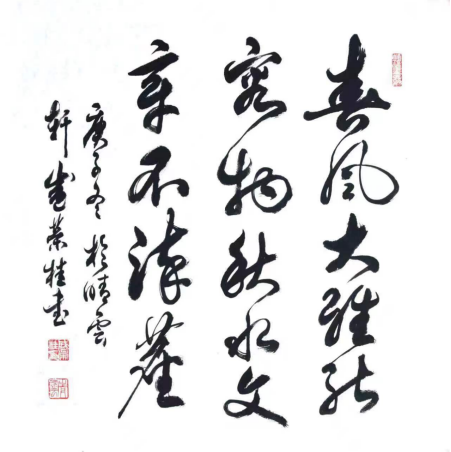 春風大雅能
容物秋水文
章不染塵
庚子冬於晴雲
軒榮桂書